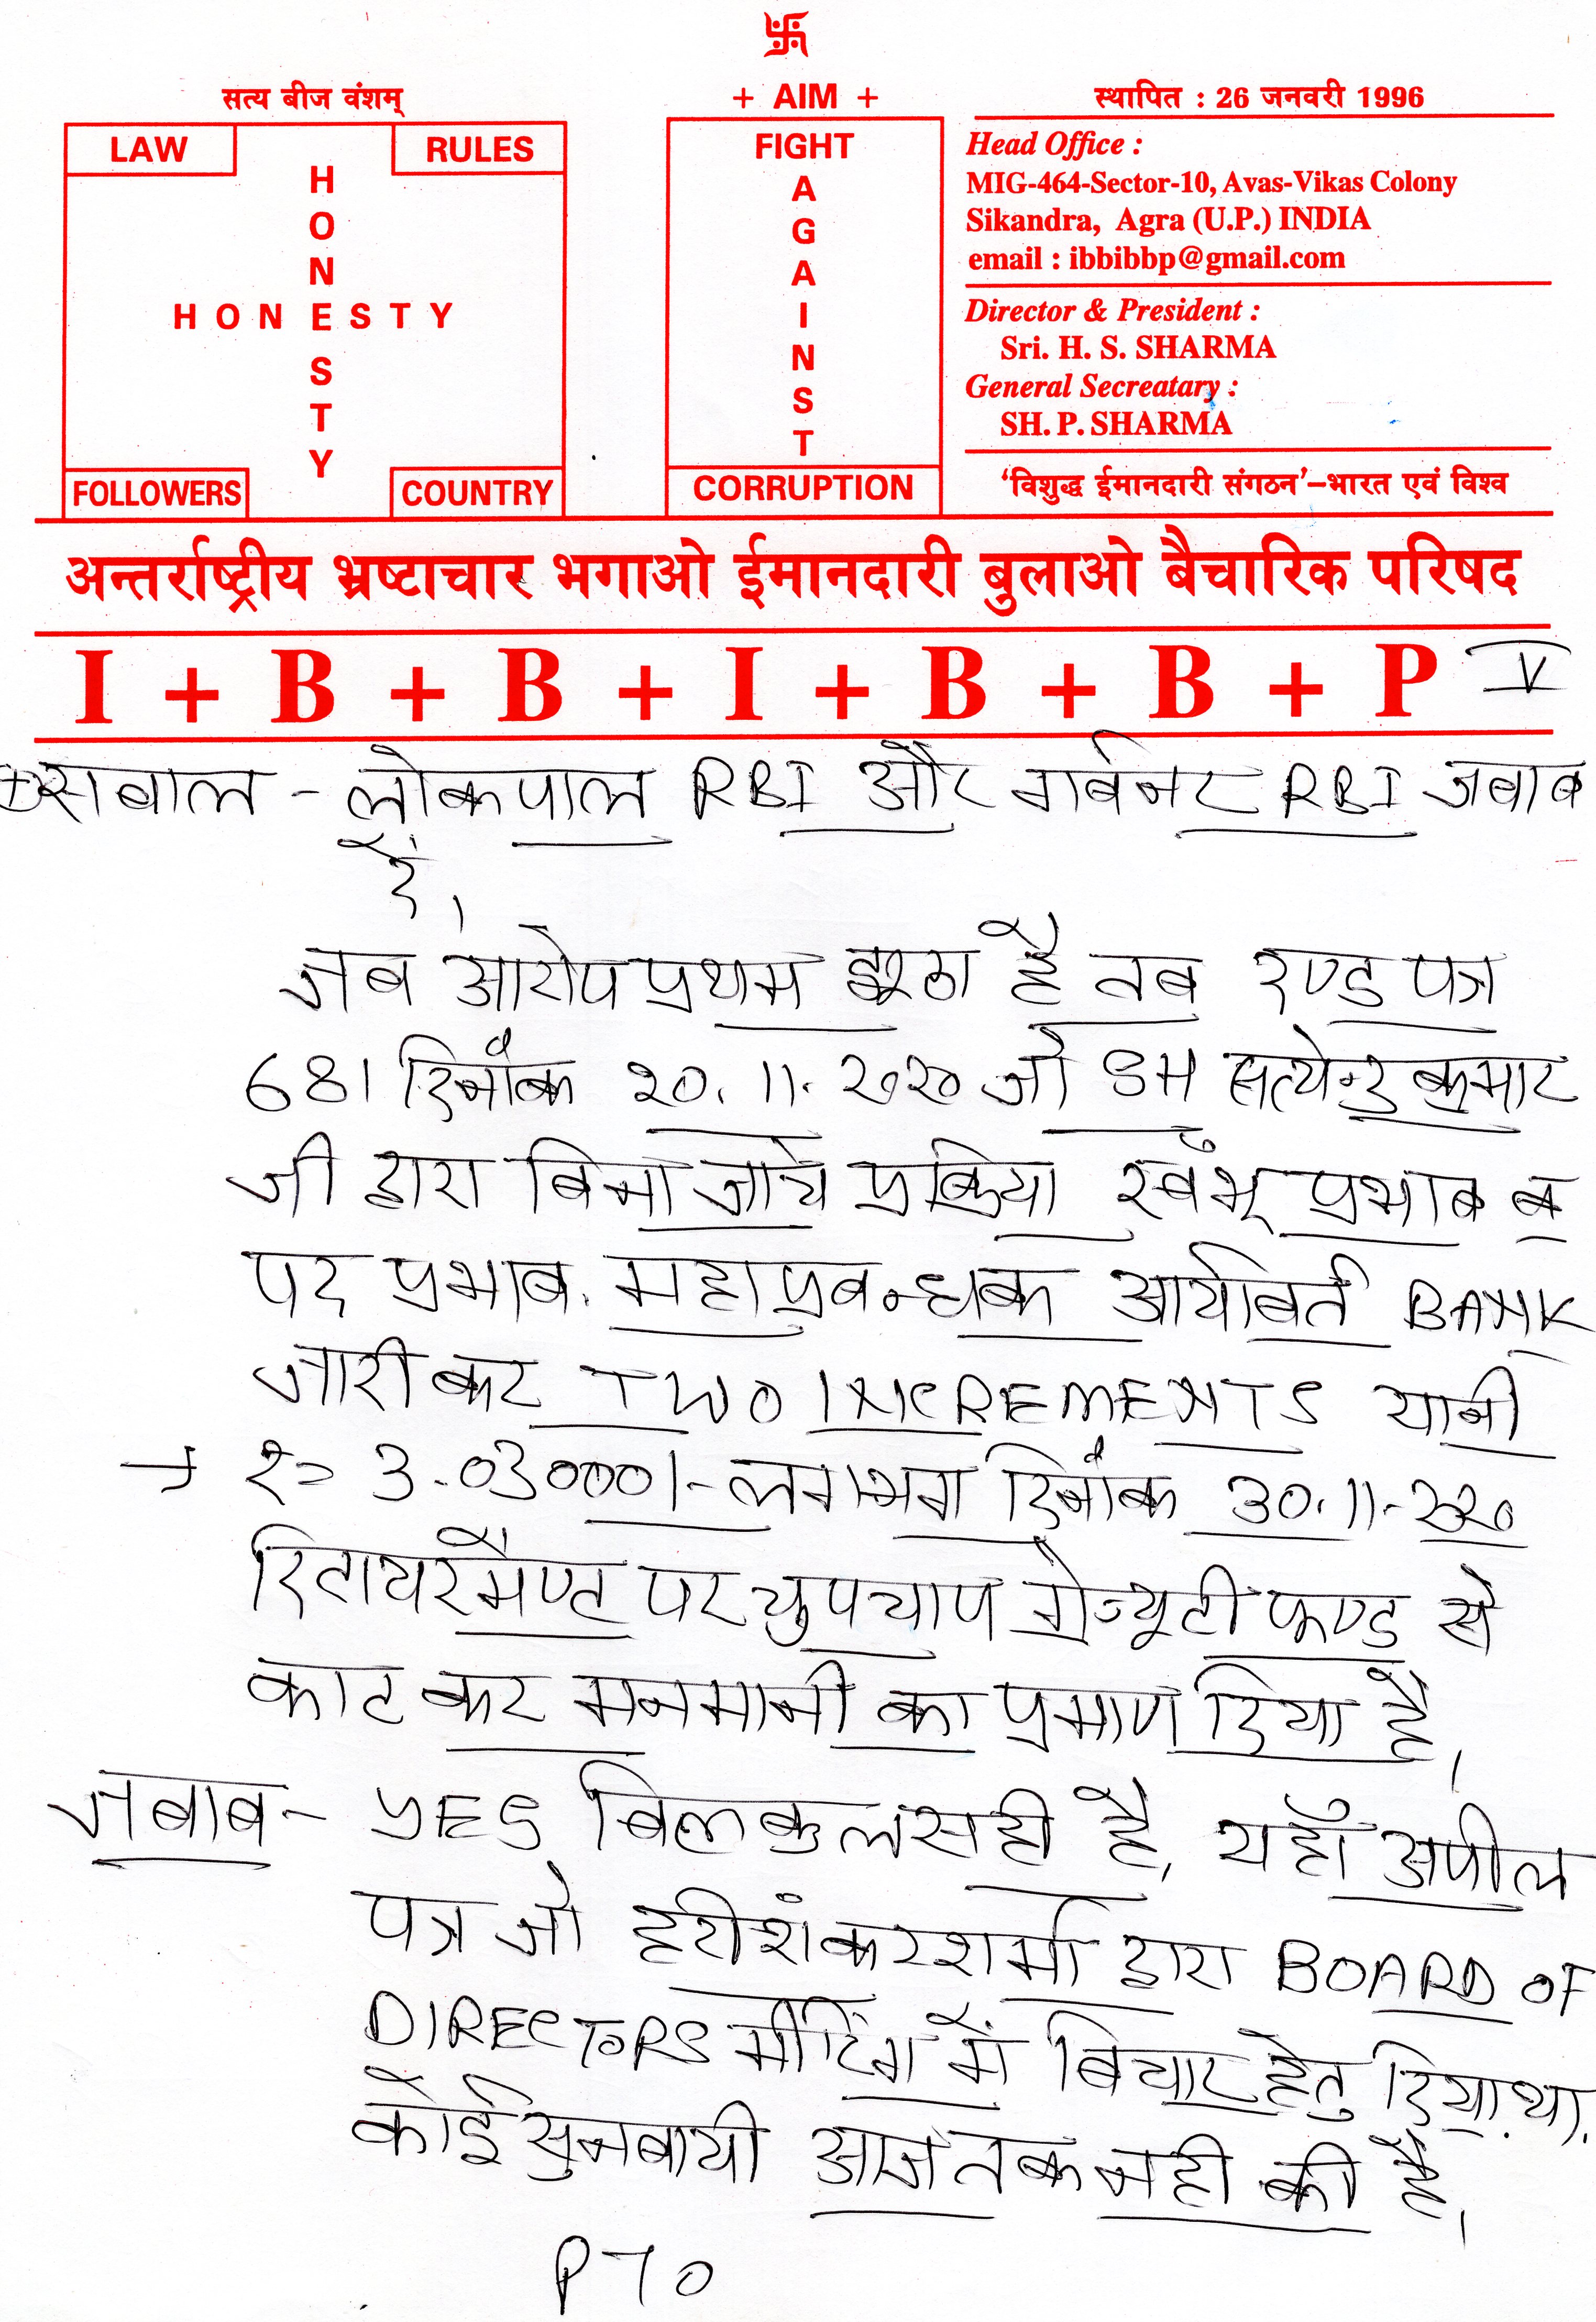 卐
सत्य बीज वंशम्
LAW
RULES
HONESTY
HONESTY
FOLLOWERS
COUNTRY
+ AIM +
FIGHT
AGAINST
CORRUPTION
स्थापित : 26 जनवरी 1996
Head Office :
MIG-464-Sector-10, Avas-Vikas Colony
Sikandra, Agra (U.P.) INDIA
email : ibbibbp@gmail.com
Director & President :
Sri. H. S. SHARMA
General Secreatary :
SH. P. SHARMA
‘विशुद्ध ईमानदारी संगठन’–भारत एवं विश्व
अन्तर्राष्ट्रीय भ्रष्टाचार भगाओ ईमानदारी बुलाओ बैचारिक परिषद
I + B + B + I + B + B + P V
सबाल - लोकपाल RBI और गर्बनर RBI जबाब
दें।
जब आरोप प्रथम झूठा है तब दण्ड पत्र
681 दिनाँक 20.11.2020 जो SH सत्येन्द्र कुमार
जी द्वारा बिना जाँच प्रक्रिया स्वंभू प्रभाब ब
पद प्रभाब. महाप्रबन्धक आर्याबर्त BANK
जारी कर TWO INCREMENTS यानी
→ 3.03000/- लगभग दिनाँक 30.11.2020
रिटायरमैण्ट पर चुपचाप ग्रेज्यूटी फण्ड से
काट कर मनमानी का प्रमाण दिया है।
जबाब - YES बिलकुल सही है, यहाँ अपील
पत्र जो हरीशंकर शर्मा द्वारा BOARD OF
DIRECTORS मीटिंग में बिचार हेतु दिया था.
कोई सुनबायी आज तक नही की है।
PTO